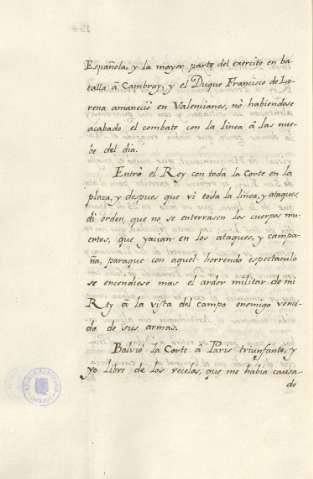 Española, y la mayor parte del exército en ba-
talla â Cambray, y el Duque Francisco de Lo-
rena amaneció en Valencianas, nó habiendose
acabado el combate con la linea â las nue-
be del dia.
Entró el Rey con toda la Corte en la
plaza, y despues que vi toda la linea, y ataques,
di orden, que no se enterrasen los cuerpos mu-
ertos, que yacian en los ataques, y campa-
ña, paraque con aquel horrendo espectaculo
se encendiese mas el ardor militar de mi
Rey â la vista del campo enemigo venci-
do de sus armas.
Bolvió la Corte â Paris triunfante, y
yo libre de los recelos, que me habia causa-
do